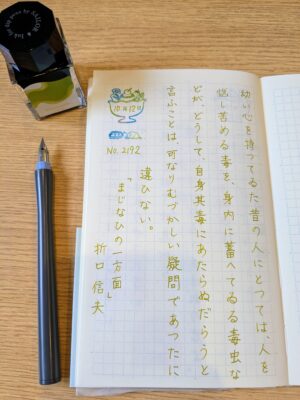 Ink for dip pen by SAILOR
10月12日
No. 2192
幼い心を持つてゐた昔の人にとつては、人を
悩し苦める毒を、身内に蓄へてゐる毒虫な
どが、どうして、自身其毒にあたらぬだらうと
言ふことは、可なりむづかしい疑問であつたに
違ひない。
「まじなひの一方面」
折口信夫